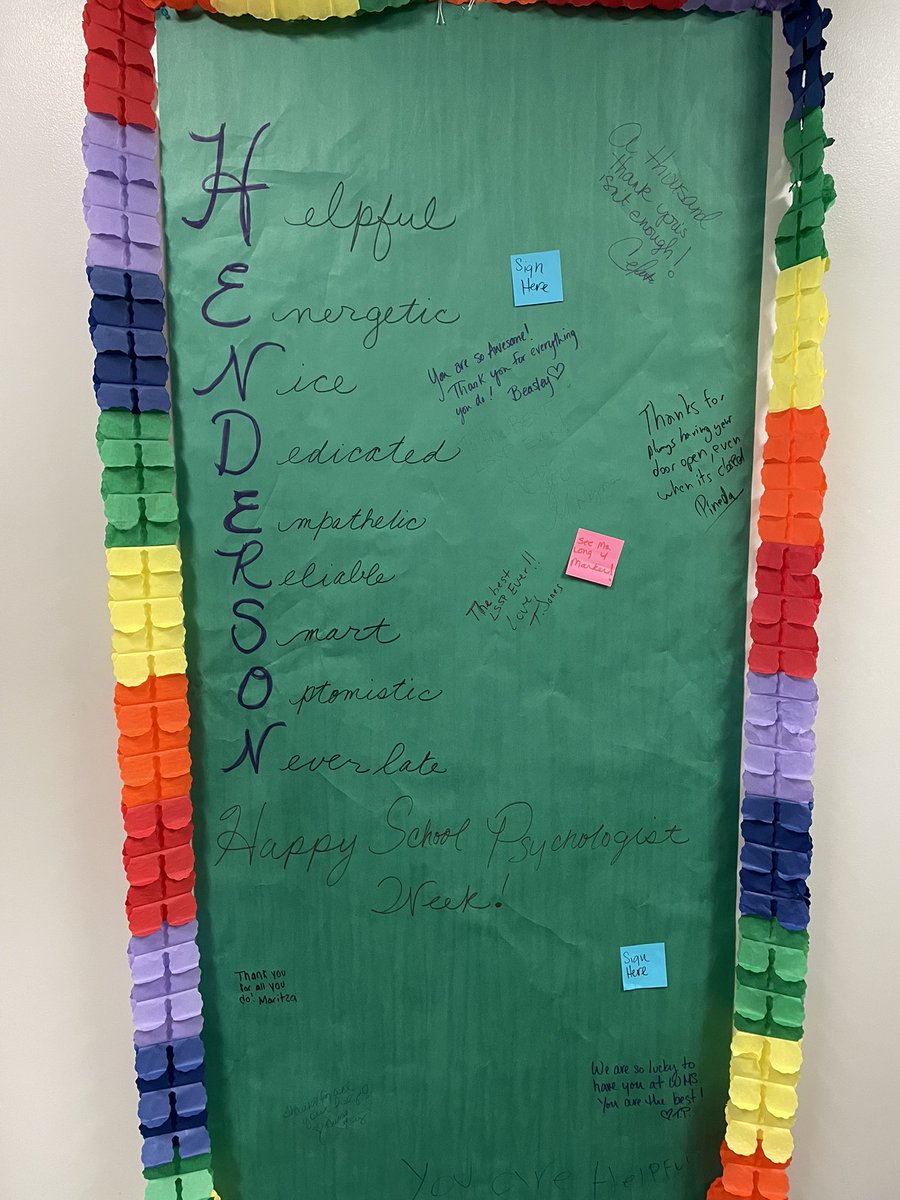 Helpful
Energetic
Nice
Dedicated
Empathetic
Reliable
Smart
Optomistic
Never late
Happy School Psychologist
Week!
A thousand
thank you's
isn't enough!
Sign
Here
You are so Awesome!
Thank you for everything
you do! Beasley♡
Thanks for
always having your
door open, even
when it's closed
Pineda
See Ms.
Long 4
Marker!
The best
LSSP Ever!!
Love
T-Jones
Thank you
for all you
do! Maritza
Sign
Here
We are so lucky to
have you at
You are the best!
♡T.P.
You are HelpFul